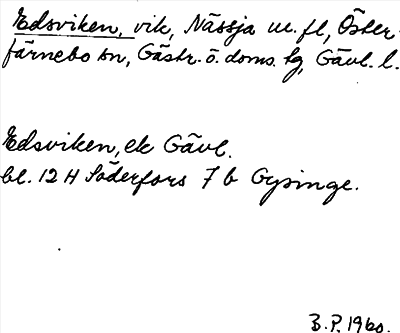 Edsviken, vik, Nässja m. fl, Öster-
färnebo sn, Gästr. ö. doms. tg, Gävl. l.
Edsviken, ek Gävl.
bl. 12 H Söderfors 7 b Gysinge.
B.P. 1960.